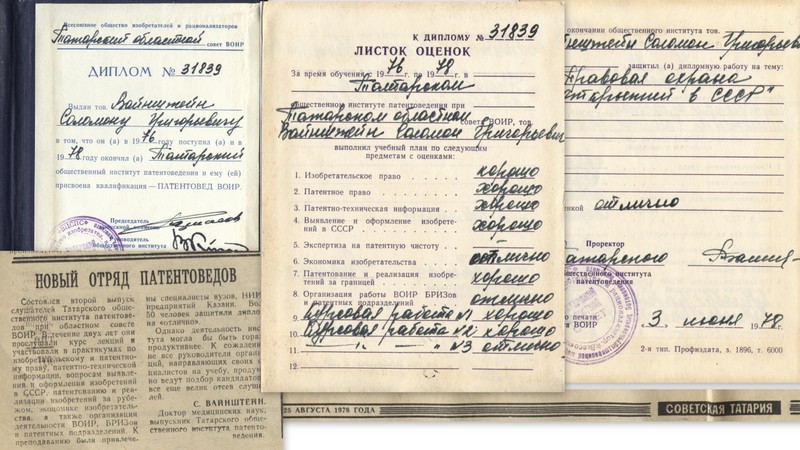 Всесоюзное общество изобретателей и рационализаторов
Татарский областной совет ВОИР
ДИПЛОМ № 31839
Выдан тов. Вайнштейн
Соломону Григорьевичу
в том, что он (а) в 1976 поступил (а) и в
1978 году окончил (а) Татарский
общественный институт патентоведения и ему (ей)
присвоена квалификация — ПАТЕНТОВЕД ВОИР.
Председатель
НОВЫЙ ОТРЯД ПАТЕНТОВЕДОВ
Состоялся второй выпуск
слушателей Татарского обще-
ственного института патентове-
дения при областном совете
ВОИР. В течение двух лет они
прослушали курс лекций и
участвовали в практикумах по
изобретательскому и патентно-
му праву, патентно-технической
информации, вопросам выявле-
ния и оформления изобретений
в СССР, патентованию и реа-
лизации изобретений за рубе-
жом, экономике изобретатель-
ства, а также организации
деятельности ВОИР, БРИЗов
и патентных подразделений. К
преподаванию были привлече-
ны специалисты вузов, НИИ,
предприятий Казани. Бо
50 человек защитили диплом
на «отлично».
Однако деятельность инсти-
тута могла бы быть гора
продуктивнее. К сожалени
не все руководители органи
ций, направляющих своих
циалистов на учебу, продума
но ведут подбор кандидатов
все еще велик отсев слуша
лей.
С. ВАЙНШТЕЙН.
Доктор медицинских наук,
выпускник Татарского обще-
ственного института патенто-
ведения.
К ДИПЛОМУ № 31839
ЛИСТОК ОЦЕНОК
За время обучения с 1976 г. по 1978 г. в
Татарском
общественном институте патентоведения при
Татарском областном
совета ВОИР, тов.
Вайнштейн Соломон Григорьевич
выполнил учебный план по следующим
предметам с оценками:
1. Изобретательское право хорошо
2. Патентное право хорошо
3. Патентно-техническая информация хорошо
4. Выявление и оформление изобрете-
ний в СССР хорошо
5. Экспертиза на патентную чистоту —
6. Экономика изобретательства отлично
7. Патентование и реализация изобре-
тений за границей хорошо
8. Организация работы ВОИР БРИЗов
и патентных подразделений отлично
9. Курсовая работа №1 хорошо
10. Курсовая работа №2 хорошо
11. " — " №3 отлично
12.
окончании общественного института тов.
Вайнштейн Соломон Григорьеви
защитил (а) дипломную работу на тему:
Правовая охрана
открытий в СССР"
отлично
Проректор
Татарского
института
патентоведения
печати
ВОИР
3 июня 1978
2-я тип. Профиздата, з. 1896, т. 6000
25 АВГУСТА 1978 ГОДА
СОВЕТСКАЯ ТАТАРИЯ